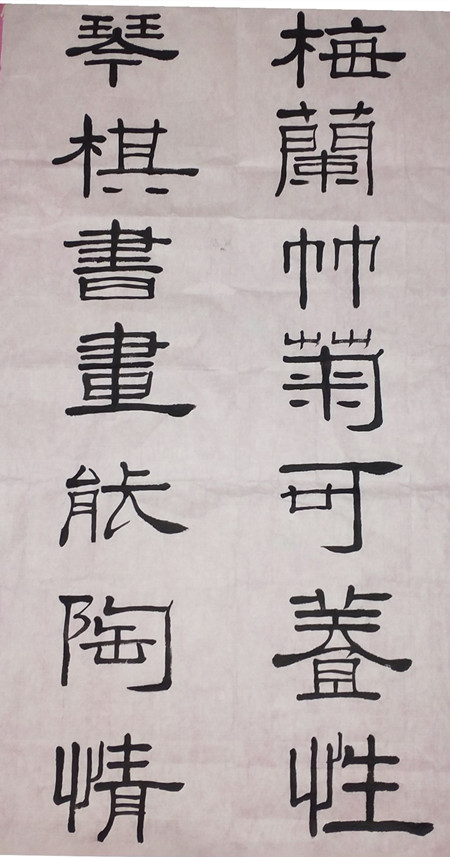 梅蘭竹菊可養性
琴棋書畫能陶情